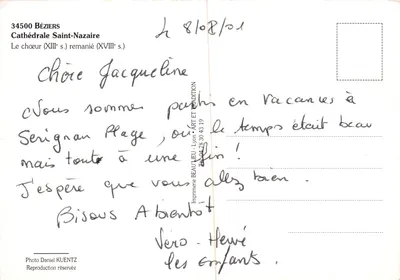 34500 BÉZIERS
Cathédrale Saint-Nazaire
Le chœur (XIIIᵉ s.) remanié (XVIIIᵉ s.)
Le 8/08/01
Chère Jacqueline
Nous sommes partis en vacances à
Serignan Plage, ou le temps était beau
mais tout à une fin !
J'espère que vous allez bien.
Bisous A bientôt
Véro - Hervé
les enfants.
Imprimerie BEAU LIEU - Lyon - ART ET
30 43 19
Photo Daniel KUENTZ
Reproduction réservée